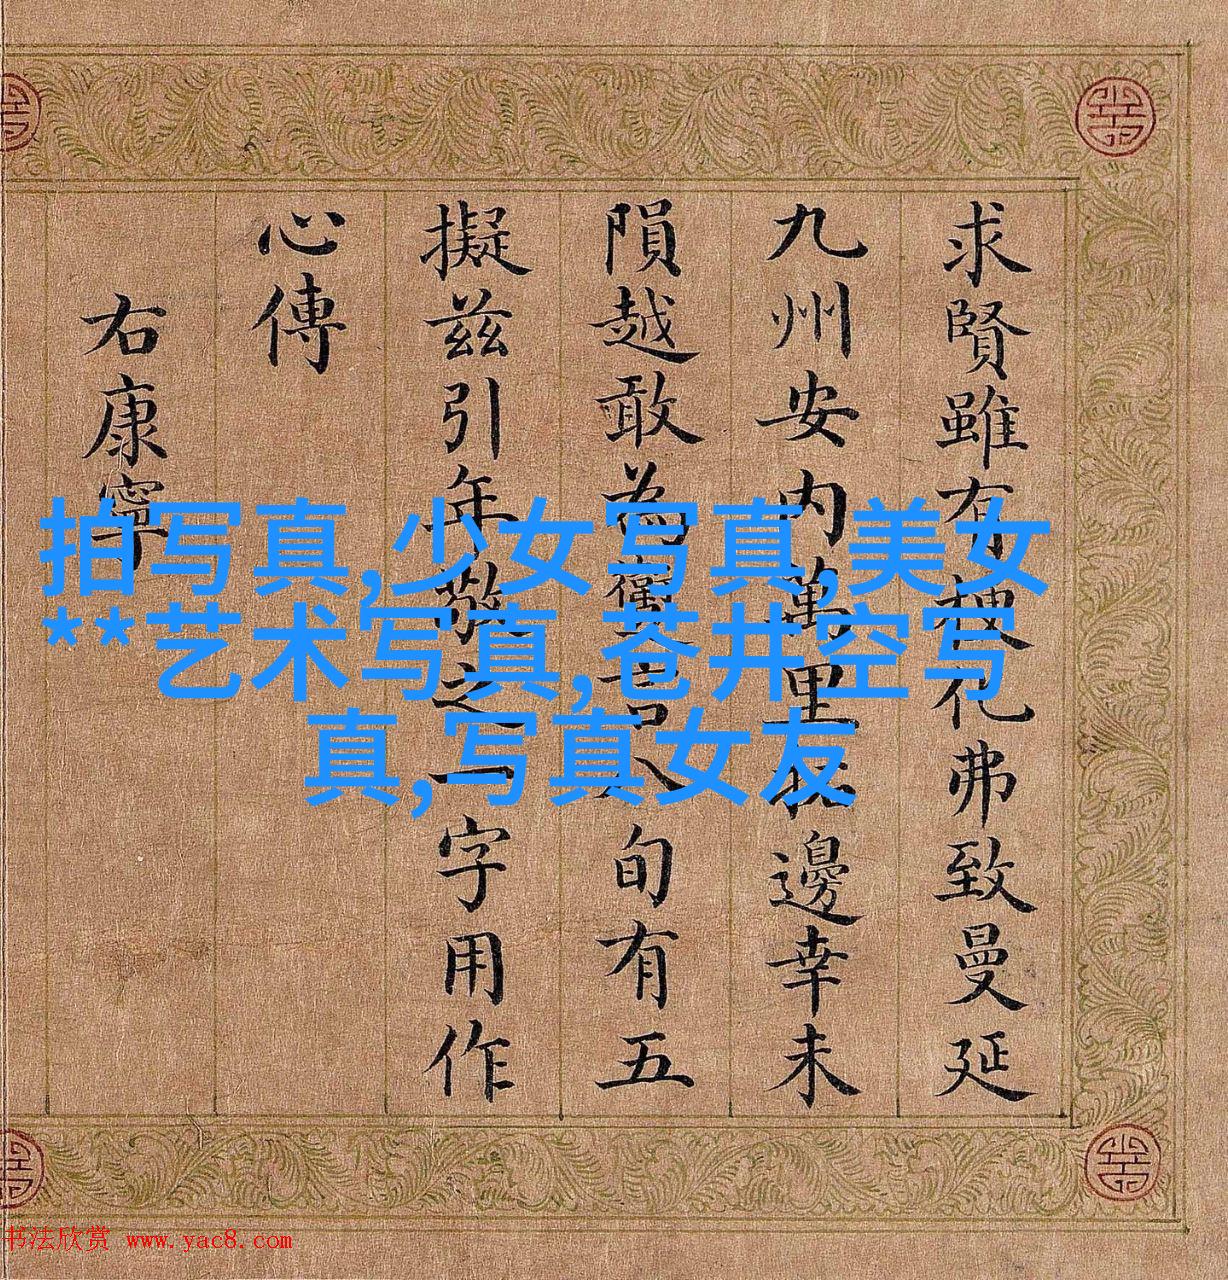 求賢雖有梗化弗致曼延
九州安内萬里拓邊幸未
隕越敢為衛言八旬有五
擬茲引年敬之一字用作
心傳
右康寧
拍写真,少女写真,美女
**艺术写真,苍井空写
真,写真女友
书法欣赏 www.yac8.com